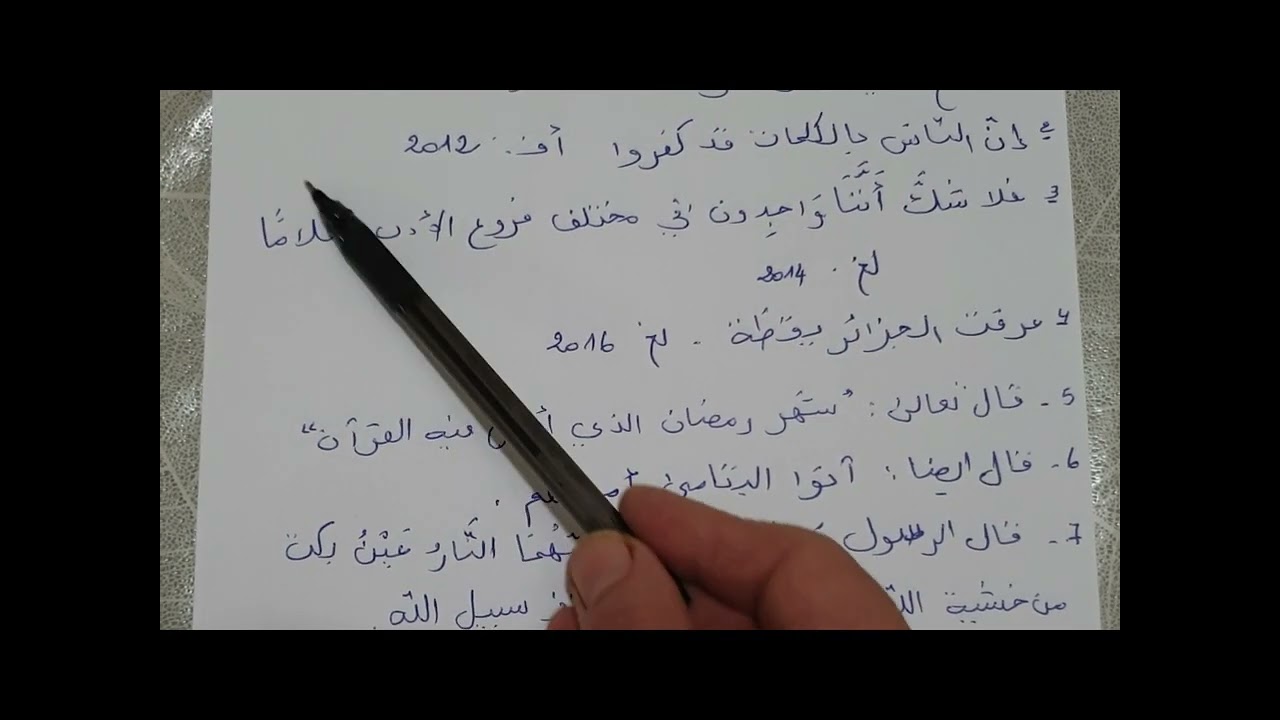 2 إنّ النّاس بالكلمات قد كفروا أف. 2012
3 فلا شكَّ أَنَّنَا وَاجِدون في مختلف فروع الأدب
لغ. 2014
4 عرفت الجزائر يقظَة. لغ 2016
5- قال تعالى: "شهر رمضان الذي فيه القرآن"
6- قال ايضا: آتوا اليتامى
7- قال الرسول النَّارُ عَيْنٌ بكت
من خشية سبيل الله.